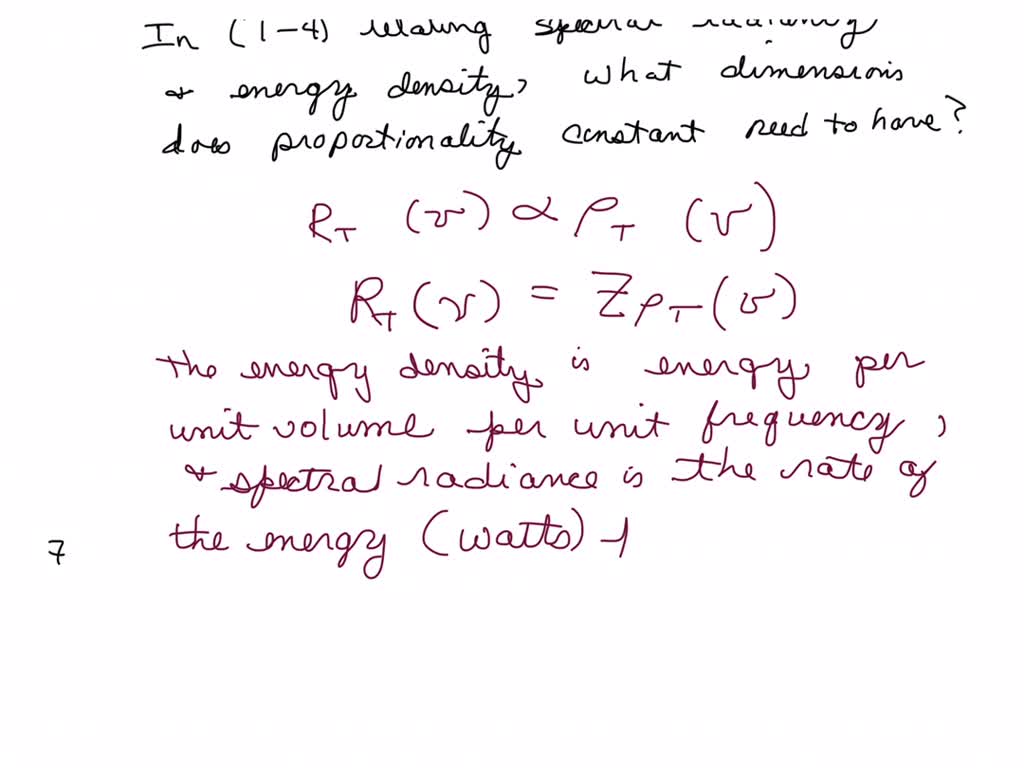 In (1-4) relating spectral radiancy
& energy density, what dimensions
does proportionality constant need to have?
R_T (ν) ∝ ρ_T (ν)
R_T (ν) = Z ρ_T (ν)
the energy density is energy per
unit volume per unit frequency,
& spectral radiance is the rate of
7 the energy (watts)